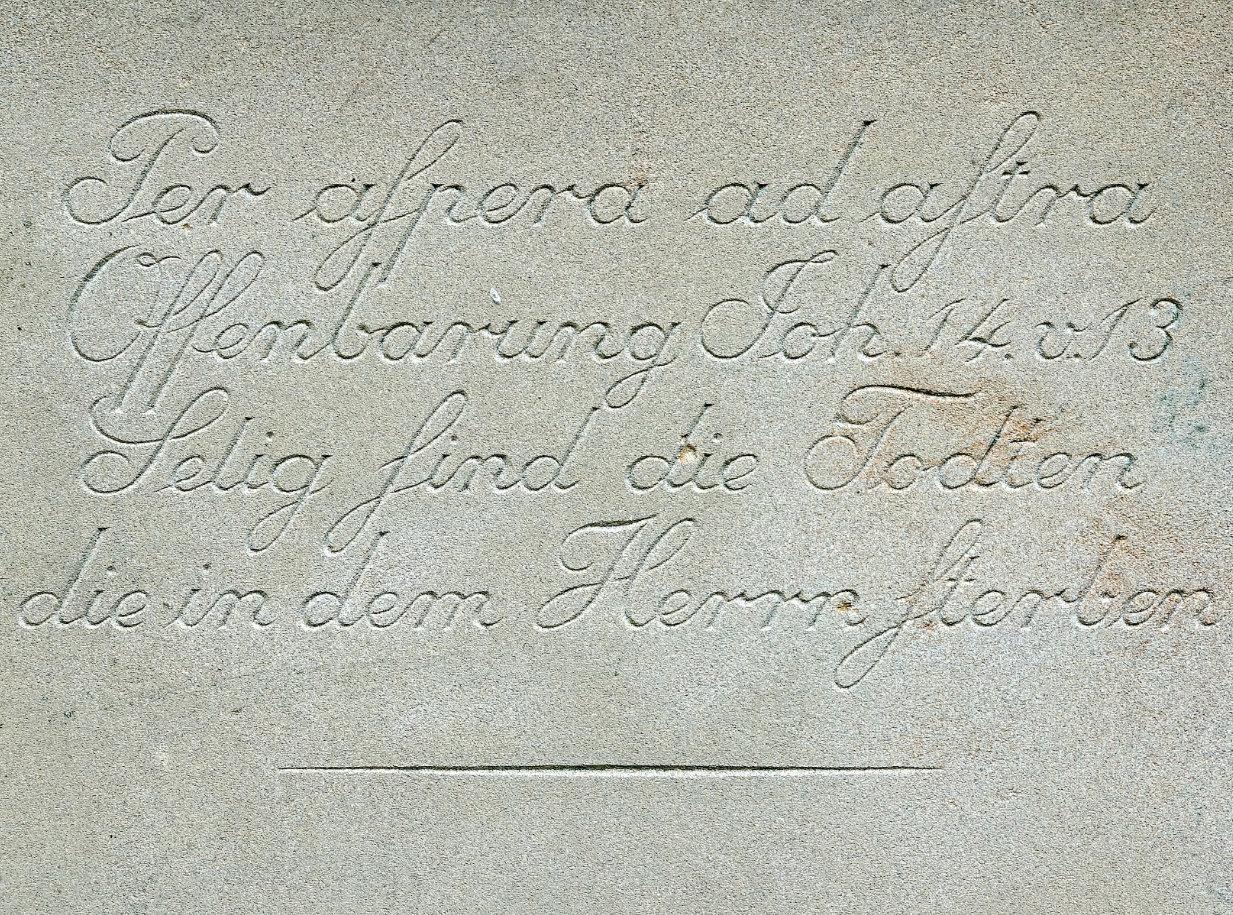 Per aſpera ad aſtra
Offenbarung Joh. 14. v. 13
Selig ſind die Todten
die in dem Herrn ſterben